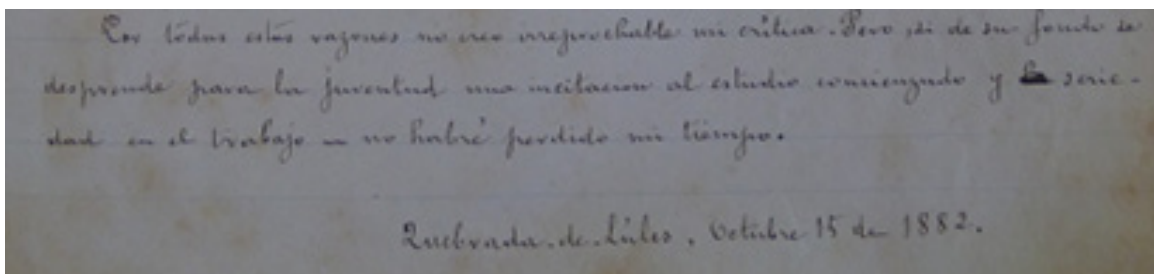 Por todas estas razones no creo irreprochable mi crítica. Pero si de su fondo se
desprende para la juventud una incitacion al estudio concienzudo y la serie-
dad en el trabajo — no habré perdido mi tiempo.
Quebrada de Lúles, Octubre 15 de 1882.